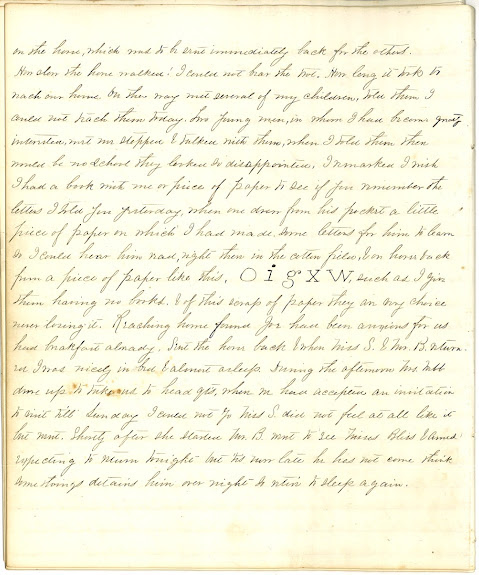 on the horse, which was to be sent immediately back for the others.
How slow the horse walked! I could not bear the trot. How long it took to
reach our home. On the way met several of my children, told them I
could not teach them today. Two young men, in whom I had become greatly
interested, met me stopped & talked with them, when I told them there
would be no school they looked so disappointed, I remarked I wish
I had a book with me or piece of paper to see if you remember the
letters I told you yesterday, when one drew from his pocket a little
piece of paper on which I had made some letters for him to learn
so I could hear him read, right then in the cotton field, I on horseback
from a piece of paper like this, O i g X W, such as I give
them having no books. & of this scrap of paper they are very choice
never losing it. Reaching home found Joe had been anxious for us
had breakfast already. Sent the horse back & when Miss S. & Mr. B. return
ed I was nicely in bed & almost asleep. During the afternoon Mrs.
drove up to take us to head qts, where we had accepted an invitation
to visit till Sunday I could not go Miss S. did not feel at all like it
but went. Shortly after she started Mr. B. went to see Misses Bliss &
expecting to return tonight but tis now late he has not come think
something detains him over night so retire to sleep again.